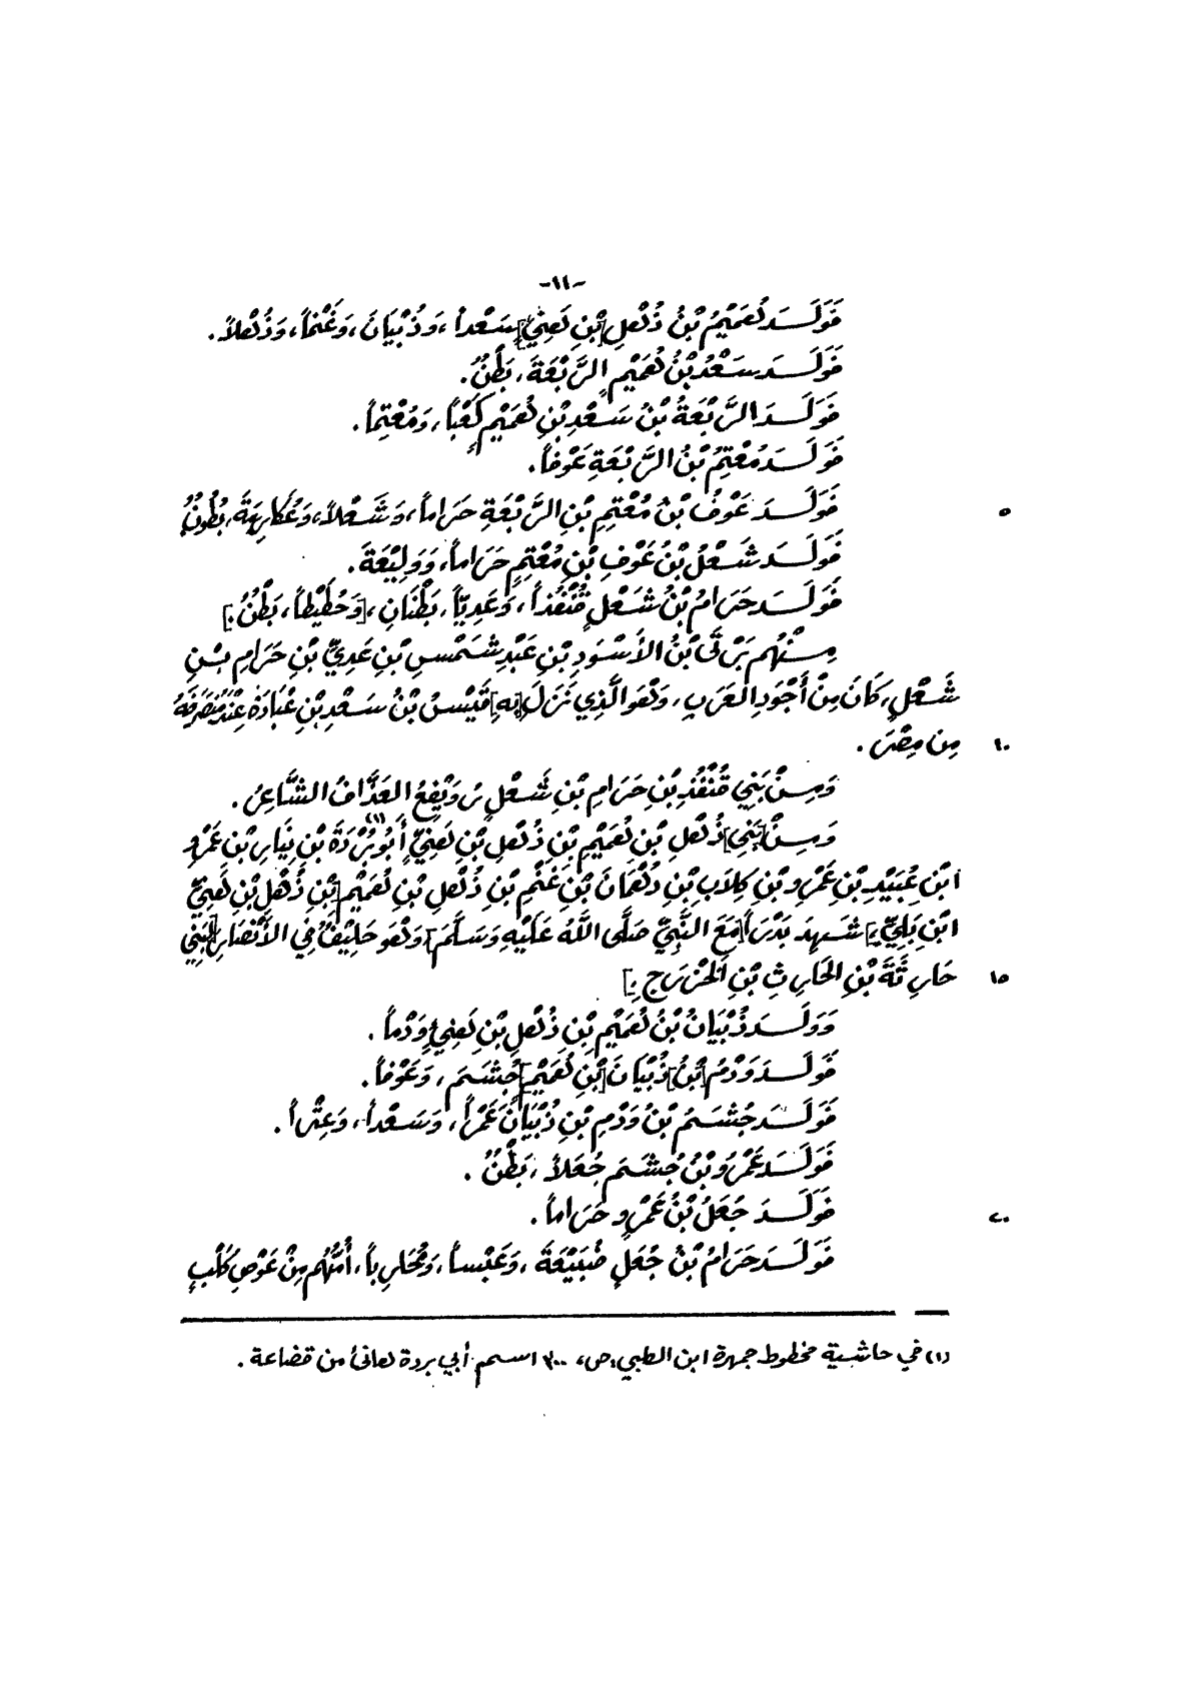 -١١-
فَوَلَــدَ هُمَيْمُ بْنُ ذُهْلِ [بْنِ هَنِيٍّ] سَعْداً، وَذُبْيَانَ، وَغَنْماً، وَذُهْلاً.
فَوَلَــدَ سَعْدُ بْنُ هُمَيْمٍ الرَّبْعَةَ، بَطْنٌ.
فَوَلَــدَ الرَّبْعَةُ بْنُ سَعْدِ بْنِ هُمَيْمٍ كَعْباً، وَمُعْتِماً.
فَوَلَــدَ مُعْتِمُ بْنُ الرَّبْعَةِ عَوْفاً.
٥ فَوَلَــدَ عَوْفُ بْنُ مُعْتِمِ بْنِ الرَّبْعَةِ حَرَاماً، وَشَعْلاً، وَعُكَارِمَةَ، بُطُونٌ
فَوَلَــدَ شَعْلُ بْنُ عَوْفِ بْنِ مُعْتِمٍ حَرَاماً، وَوَلِيْعَةَ.
فَوَلَــدَ حَرَامُ بْنُ شَعْلٍ قُنْفُذاً، وَعَدِيّاً، بَطْنَانِ، [وَحُطَيْطاً، بَطْنٌ.]
مِــنْهُم بَرْتَى بْنُ الأَسْوَدِ بْنِ عَبْدِ شَمْسِ بْنِ عَدِيِّ بْنِ حَرَامِ بْــنِ
شَعْلٍ، كَانَ مِنْ أَجْوَدِ العَرَبِ، وَهُوَ الَّذِي نَزَلَ [بِهِ] قَيْسُ بْنُ سَعْدِ بْنِ عُبَادَةَ عِنْدَ مُنْصَرَفِهِ
١٠ مِن مِصْرَ.
وَمِــنْ بَنِي قُنْفُذِ بْنِ حَرَامِ بْنِ شَعْلٍ رُوَيْفِعُ العَذَّافُ الشَّاعِرُ.
وَمِــنْ [بَنِي] ذُهْلِ بْنِ هُمَيْمِ بْنِ ذُهْلِ بْنِ هَنِيٍّ أَبُو بُرْدَةَ (١) بْنِ نِيَارِ بْنِ عَمْرِو
ابْنِ عُبَيْدِ بْنِ عَمْرِو بْنِ كِلاَبِ بْنِ دُهْمَانَ بْنِ غَنْمِ بْنِ ذُهْلِ بْنِ هُمَيْمِ [بْنِ ذُهْلِ بْنِ هَنِيِّ
ابْنِ بَلِيٍّ] شَــهِدَ بَدْرَاً [مَعَ النَّبِيِّ صَلَّى اللَّهُ عَلَيْهِ وَسَلَّمَ] وَهُوَ حَلِيْفٌ فِي الأَنْصَارِ [لِبَنِي
١٥ حَارِثَةَ بْنِ الحَارِثِ بْنِ الخَزْرَجِ.]
وَوَلَــدَ ذُبْيَانُ بْنُ هُمَيْمِ بْنِ ذُهْلِ بْنِ هَنِيٍّ وَدْماً.
فَوَلَــدَ وَدْمُ [بْنُ] ذُبْيَانَ [بْنِ هُمَيْمٍ] جُشَــمَ، وَعَوْفاً.
فَوَلَــدَ جُشَــمُ بْنُ وَدْمِ بْنِ ذُبْيَانَ عَمْراً، وَسَعْداً، وَعِتْراً.
فَوَلَــدَ عَمْرُو بْنُ جُشَــمَ جُعَلاً، بَطْنٌ.
٢٠ فَوَلَــدَ جُعَلُ بْنُ عَمْرٍو حَرَاماً.
فَوَلَــدَ حَرَامُ بْنُ جُعَلٍ ضُبَيْعَةَ، وَعَبْساً، وَمُحَارِباً، أُمُّهُم مِنْ عَوْصِ كَلْبٍ
(١) في حاشية مخطوط جمهرة ابن الكلبي، ص، ٣٠٠ اسم أبي بردة هانئ من قضاعة.